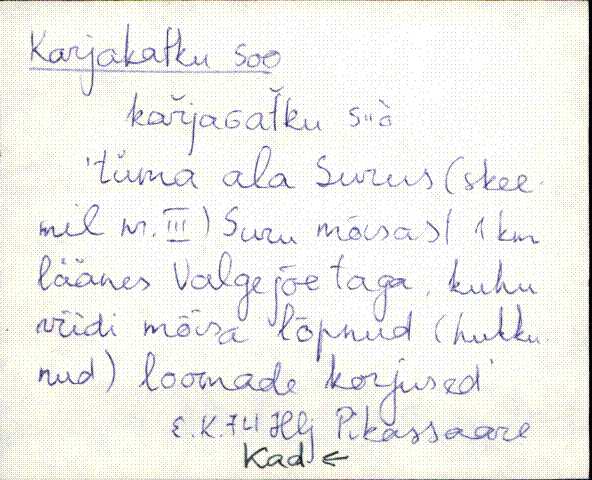 Karjakatku soo
kařjaɢaťku s
'tüma ala Surus (skee-
mil nr. III) Suru mõisast 1 km
läänes Valgejõe taga, kuhu
viidi mõisa lõpnud (hukku-
nud) loomade korjused
E.K. 74 Hlj Pikassaare
Kad ←